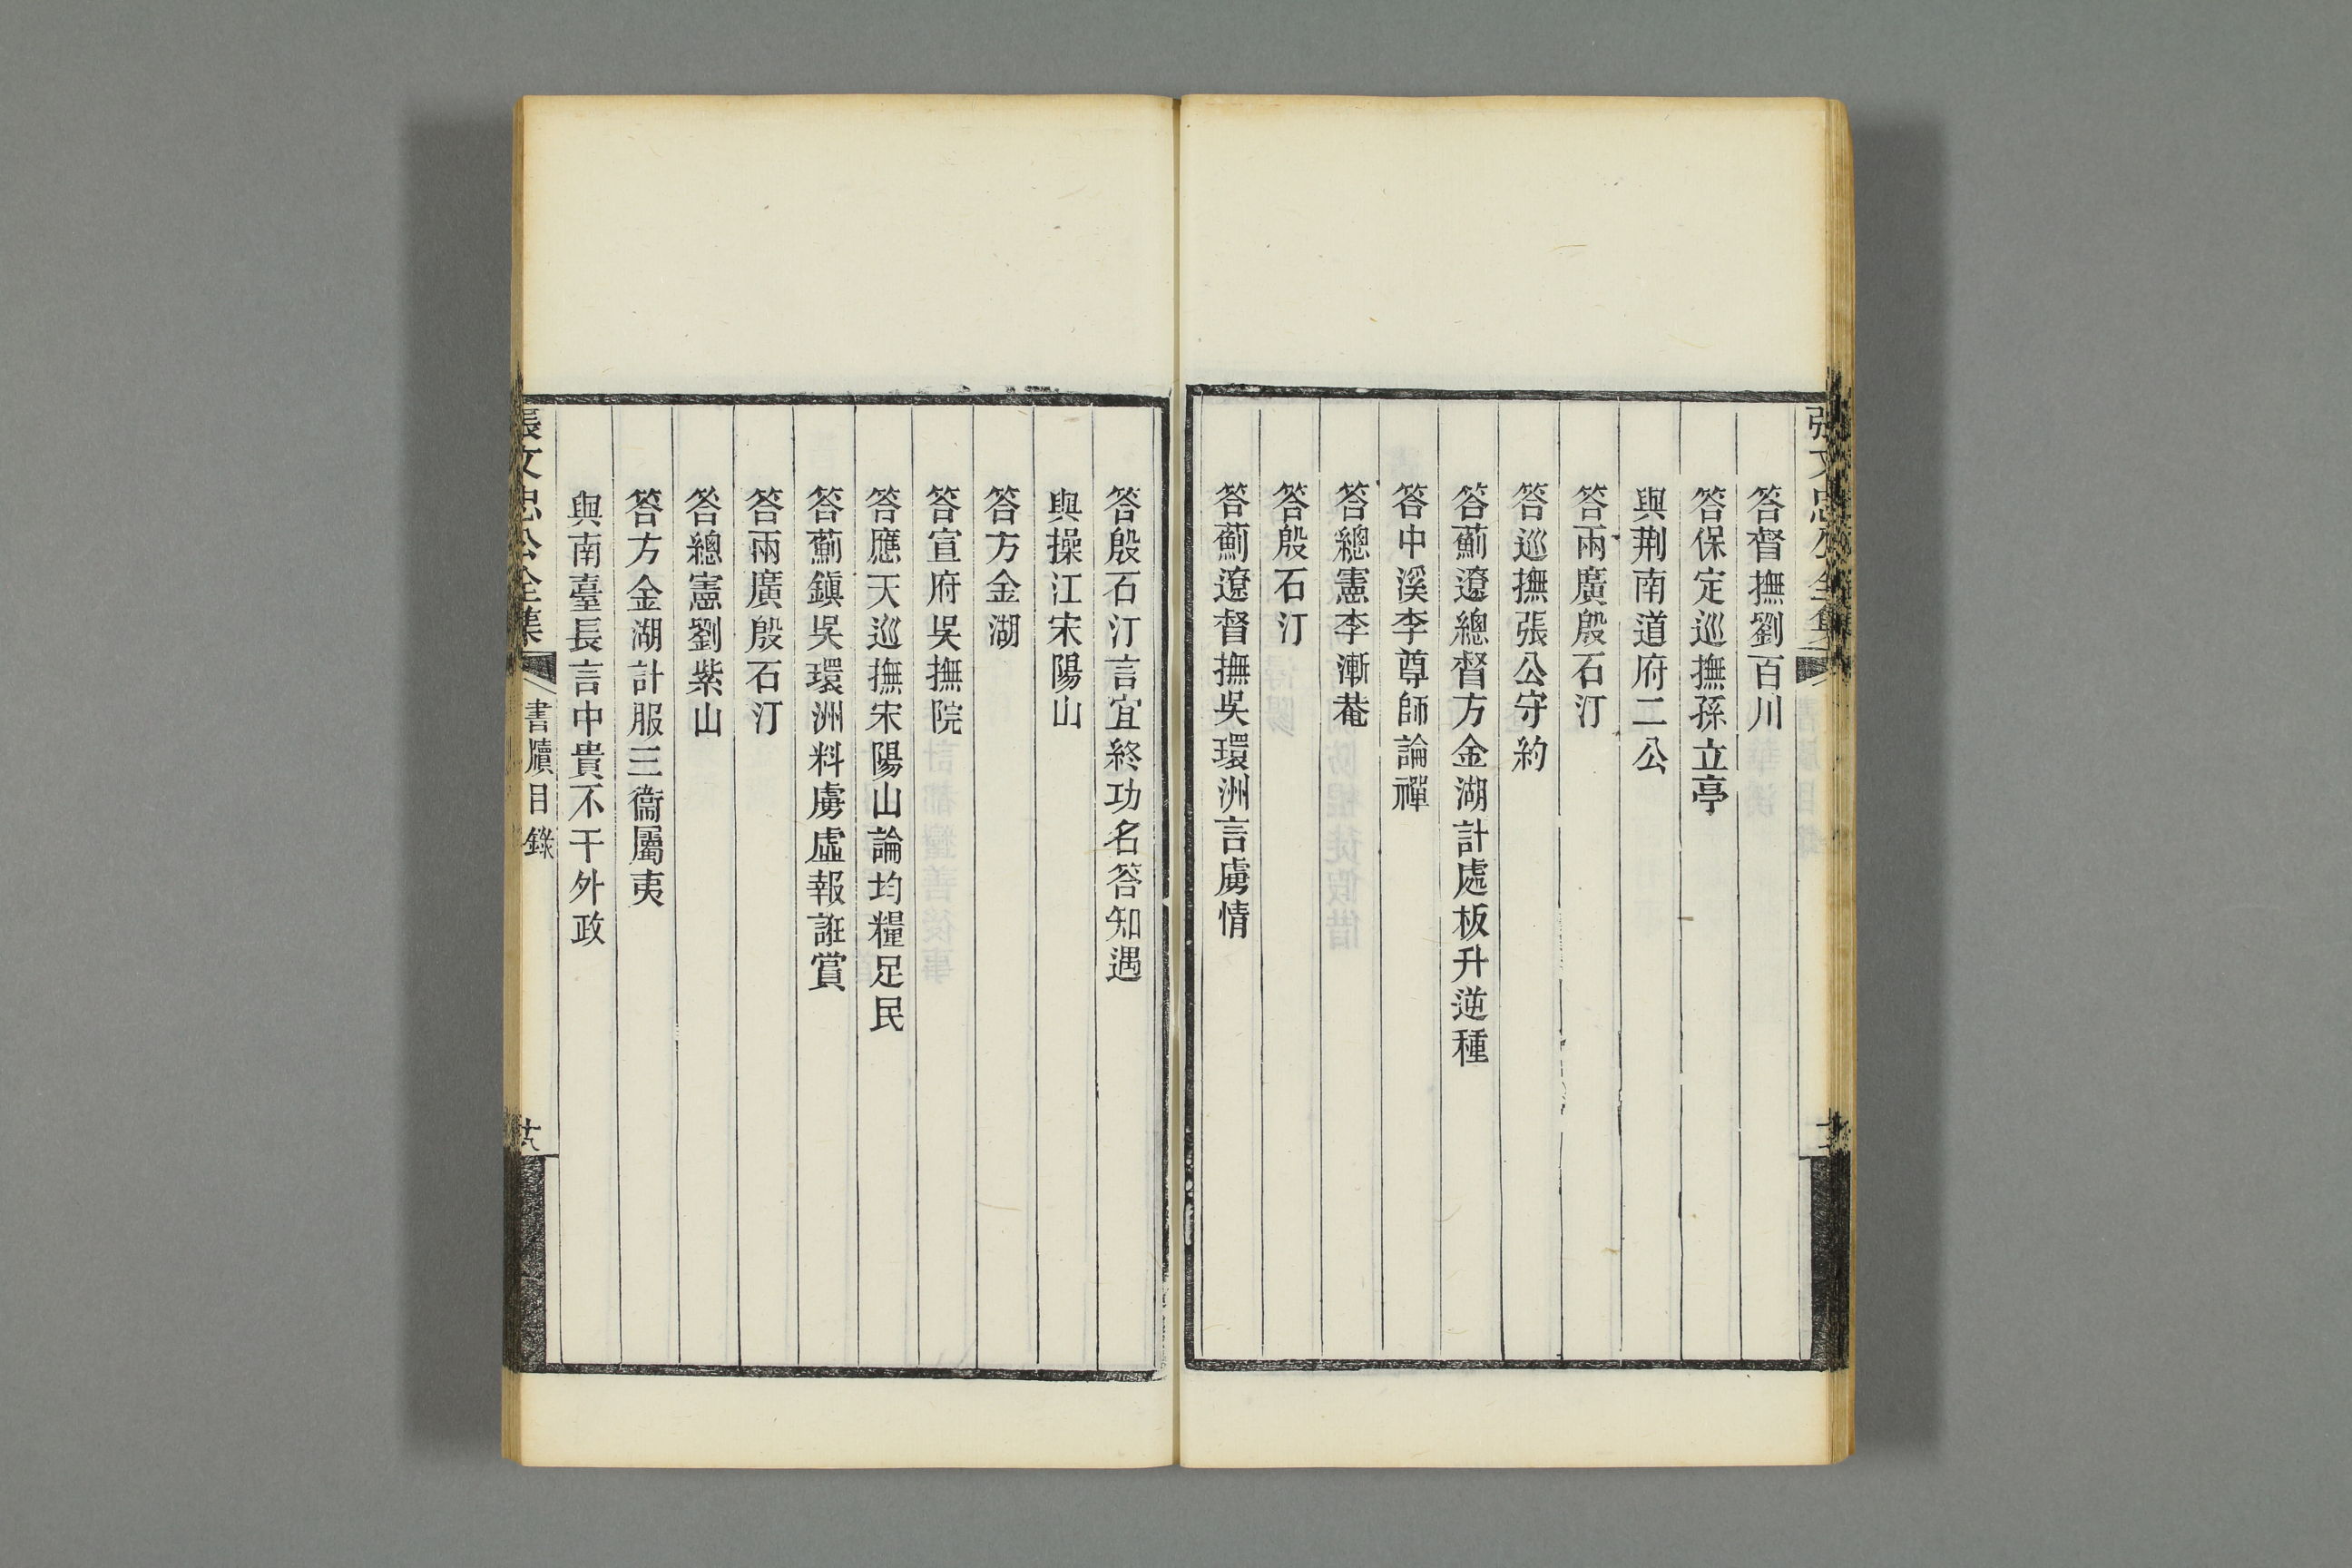 答督撫劉百川
答保定巡撫孫立亭
與荆南道府二公
答兩廣殷石汀
答巡撫張公守約
答薊遼總督方金湖計處板升逆種
答中溪李尊師論禪
答總憲李漸菴
答殷石汀
答薊遼督撫吳環洲言虜情
答殷石汀言宜終功名答知遇
與操江宋陽山
答方金湖
答宣府吳撫院
答應天巡撫宋陽山論均糧足民
答薊鎮吳環洲料虜虛報誑賞
答兩廣殷石汀
答總憲劉紫山
答方金湖計服三衞屬夷
與南臺長言中貴不干外政
張文忠公全集
書牘目錄